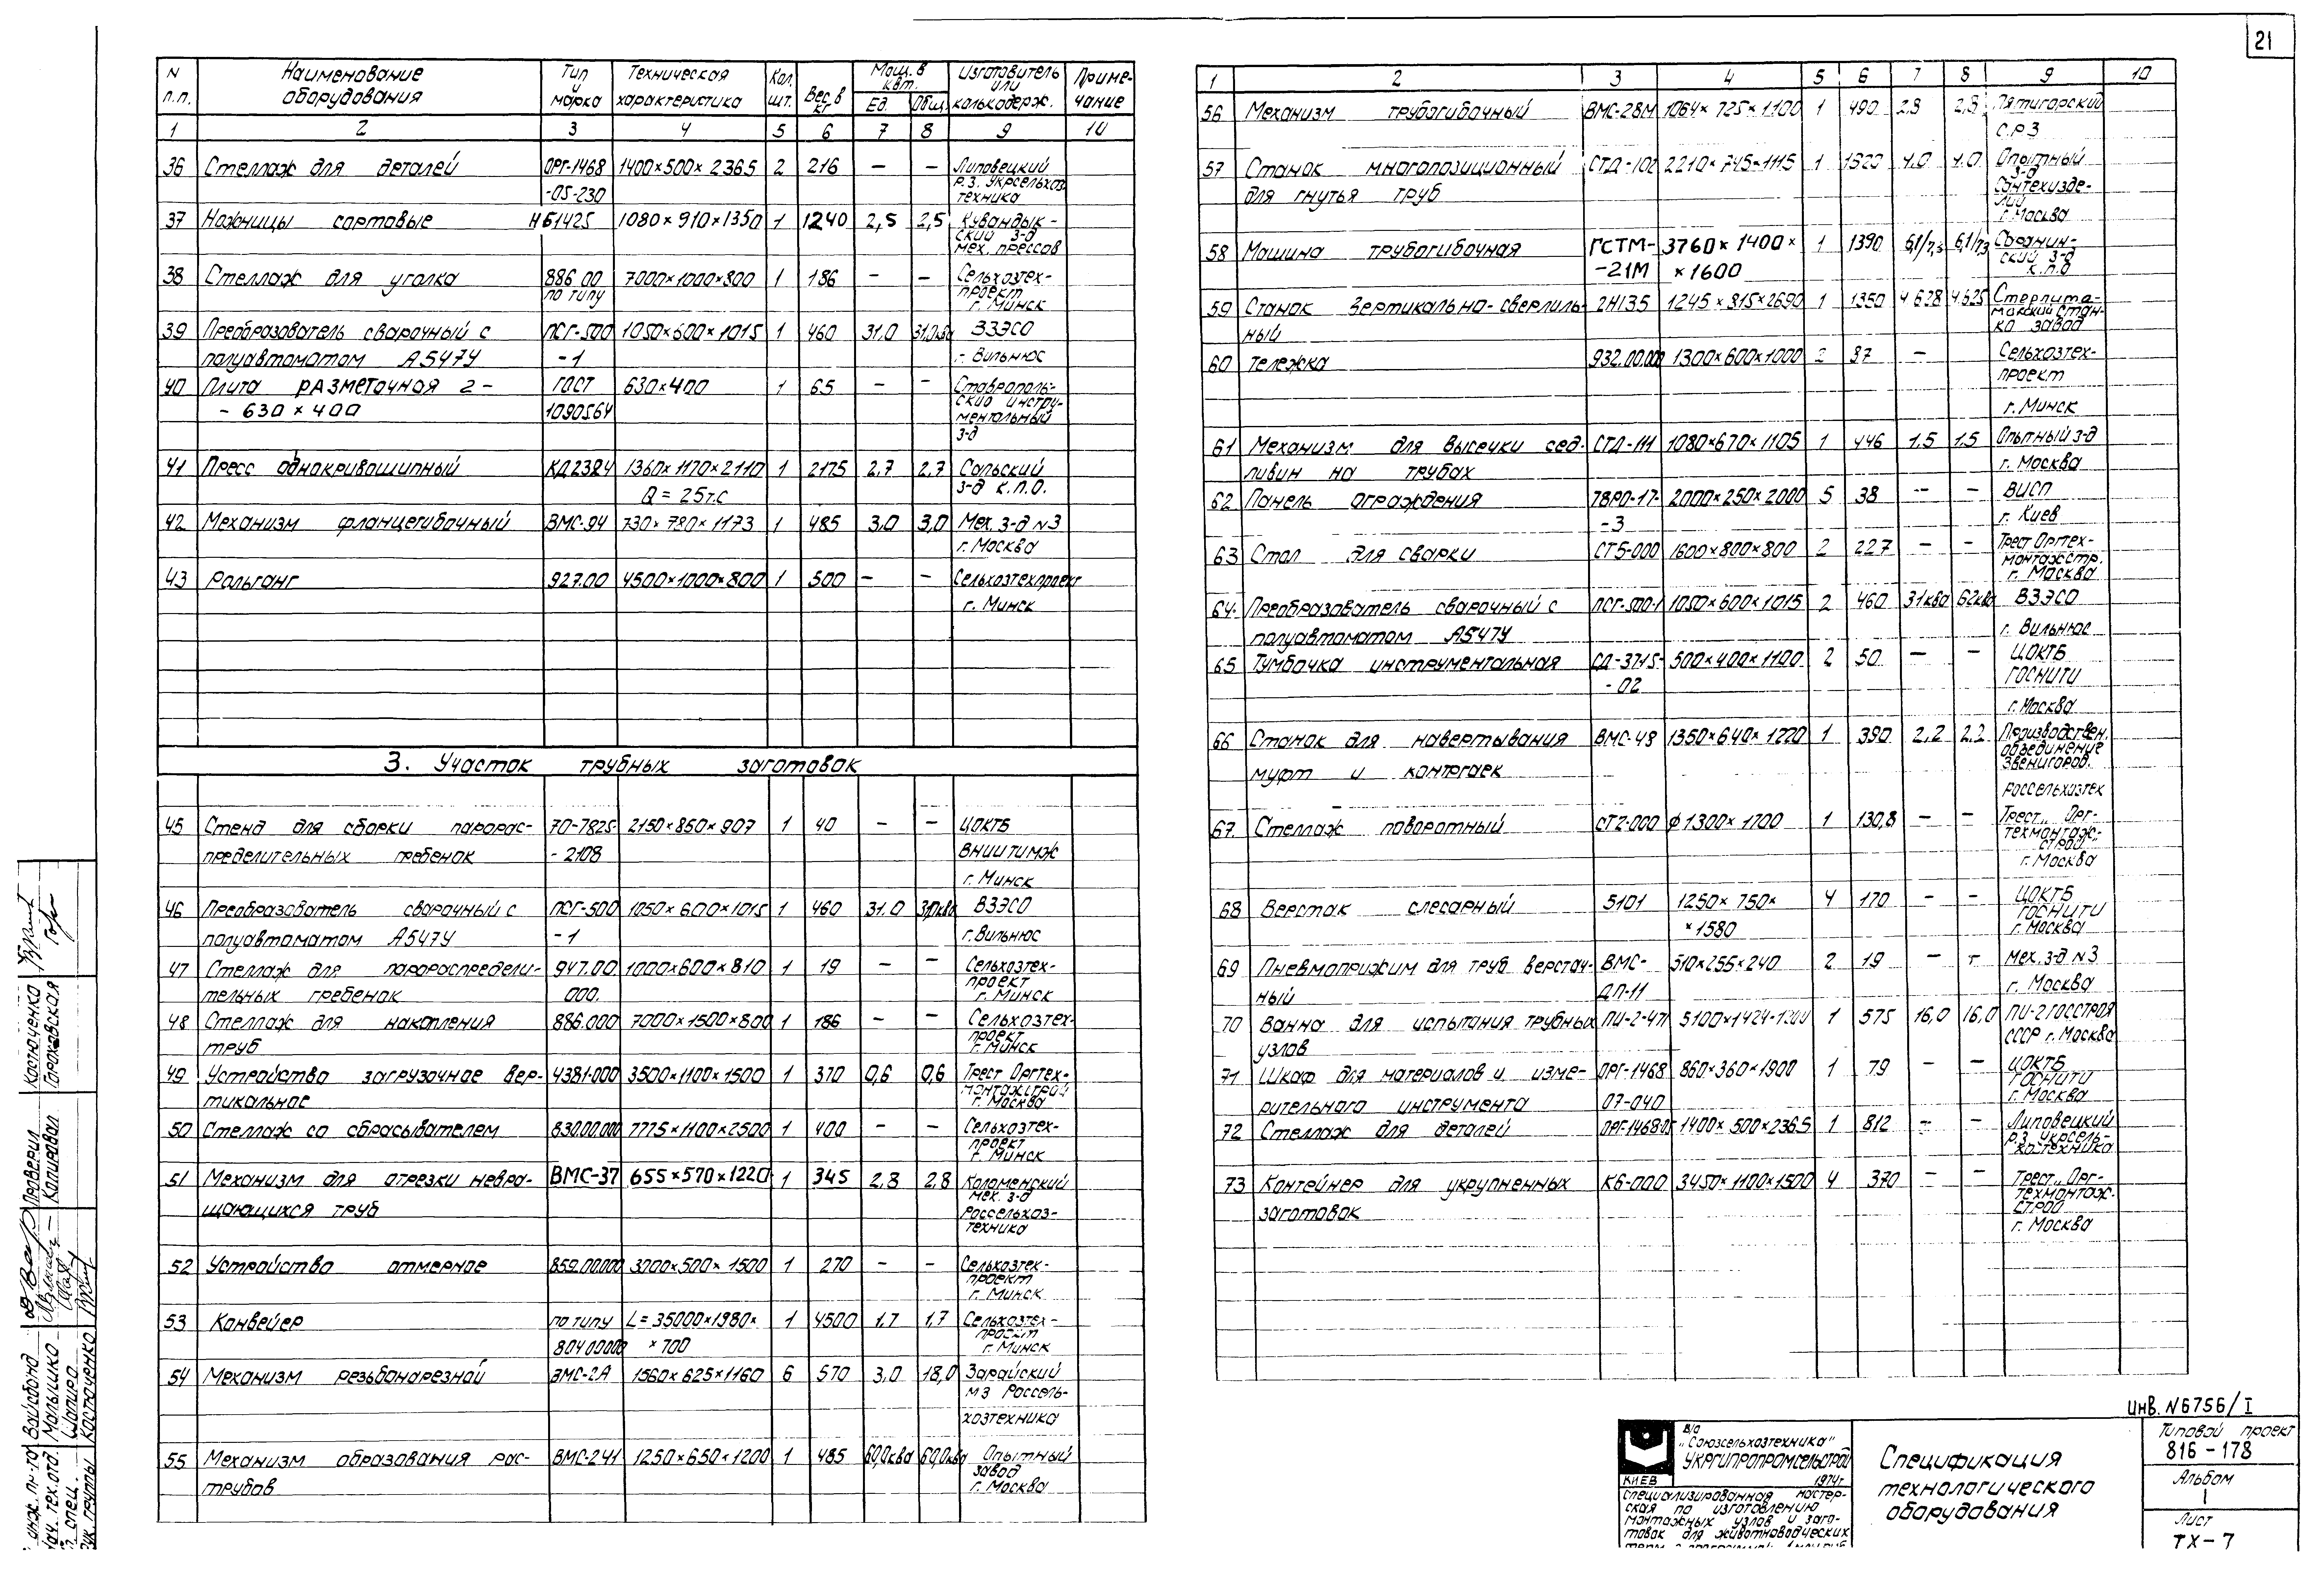 21
N п.п. Наименование оборудования Тип и марка Техническая характеристика Кол. шт. Вес в кг Мощ. в квт. Ед. Общ. Изготовитель или калькодерж. Приме-чание
1 2 3 4 5 6 7 8 9 10
36 Стеллаж для деталей ОРГ-1468 1400×500×2365 2 216 — — Липовецкий
-05-230 Р.З. Укрсельхоз
техника
37 Ножницы сортовые НБ1425 1080×910×1350 1 1240 2,5 2,5 Кувандык-
ский з-д
мех. прессов
38 Стеллаж для уголка 886 00 7000×1000×800 1 186 — — Сельхозтех-
по типу проект
г. Минск
39 Преобразователь сварочный с ПСГ-500 1050×600×1015 1 460 31,0 ВЗЭСО
полуавтоматом А547У -1 г. Вильнюс
40 Плита разметочная 2- ГОСТ 630×400 1 65 — — Ставрополь-
- 630×400 1090564 ский инстру-
ментальный
з-д
41 Пресс однокривошипный КД2324 1360×1170×2110 1 2175 2,7 2,7 Сальский
Q = 25т.с з-д к.п.о.
42 Механизм фланцегибочный ВМС-94 730×780×1173 1 485 3,0 3,0 Мех. з-д N3
г. Москва
43 Рольганг 927.00 4500×1000×800 1 500 — — Сельхозтехпроект
г. Минск
3. Участок трубных заготовок
45 Стенд для сборки парорас- 70-7825 2150×850×907 1 40 — — ЦОКТБ
пределительных гребенок -2108 ВНИИТИМЖ
г. Минск
46 Преобразователь сварочный с ПСГ-500 1050×600×1015 1 460 31.0 ВЗЭСО
полуавтоматом А547У -1 г. Вильнюс
47 Стеллаж для парораспредели- 947.00 1000×600×810 1 19 — — Сельхозтех-
тельных гребенок 000. проект
г. Минск
48 Стеллаж для накопления 886.000 7000×1500×800 1 186 — — Сельхозтех-
труб проект
г. Минск
49 Устройство загрузочное вер- 4381-000 3500×1100×1500 1 370 0,6 0,6 Трест Оргтех-
тикальное монтажстрой
г. Москва
50 Стеллаж со сбрасывателем 830.00.000 7775×1100×2500 1 400 — — Сельхозтех-
проект
г. Минск
51 Механизм для отрезки невра- ВМС-37 655×570×1220 1 345 2,8 2,8 Коломенский
щающихся труб мех. з-д
Россельхоз-
техника
52 Устройство отмерное 859.00.000 3000×500×1500 1 270 — — Сельхозтех-
проект
г. Минск
53 Конвейер по типу L=35000×1980× 1 4500 1.7 1,7 Сельхозтех-
804 00000 ×700 проект
г. Минск
54 Механизм резьбонарезной ВМС-2А 1560×625×1160 6 570 3,0 18,0 Зарайский
МЗ Россель-
хозтехника
55 Механизм образования рас- ВМС-241 1250×650×1200 1 485 60,0ква 60,0ква Опытный
трубов завод
г. Москва
1 2 3 4 5 6 7 8 9 10
56 Механизм трубогибочный ВМС-28М 1064×725×1100 1 490 2.8 2,8 Пятигорский
С.Р.З
57 Станок многопозиционный СТД-102 2210×745×1115 1 4.0 4.0 Опытный
для гнутья труб з-д
Сантехизде-
лий
г. Москва
58 Машина трубогибочная ГСТМ- 3760×1400× 1 1390 6,1/7,3 6,1/7,3
-21М ×1600 ский з-д
к.п.о
59 Станок вертикально-сверлиль- 2Н135 1245×815×2690 1 1350 4.625 Стерлита-
ный макский стан-
ко завод
60 Тележка 932.00.000 1300×600×1000 2 87 — Сельхозтех-
проект
г. Минск
61 Механизм для высечки сед- СТД-111 1080×670×1105 1 446 1.5 1.5 Опытный з-д
ловин на трубах г. Москва
62 Панель ограждения 78РО-17- 2000×250×2000 5 38 — — ВИСП
-3 г. Киев
63 Стол для сварки СТ5-000 1600×800×800 2 227 — — Трест Оргтех-
монтажстр.
г. Москва
64. Преобразователь сварочный с ПСГ-500-1 1050×600×1015 2 460 31ква 62ква ВЗЭСО
полуавтоматом А547У г. Вильнюс
65 Тумбочка инструментальная СД-3715- 500×400×1100 2 50 — — ЦОКТБ
-02 ГОСНИТИ
г. Москва
66 Станок для навертывания ВМС-48 1350×640×1220 1 390 2,2 2,2 Производствен.
муфт и контргаек объединение
Звенигород.
россельхозтех
67. Стеллаж поворотный СТ2-000 ф1300×1700 1 130,8 — — Трест „Орг-
техмонтаж-
строй
г. Москва
68 Верстак слесарный 5101 1250×750× 4 170 — — ЦОКТБ
×1580 ГОСНИТИ
г. Москва
69 Пневмоприжим для труб верстач- ВМС- 510×255×240 2 19 — Мех. з-д N3
ный ДП-11 г. Москва
70 Ванна для испытания трубных ПИ-2-47 1 575 16,0 16,0 ПИ-2 ГОССТРОЯ
узлов СССР г. Москва
71 Шкаф для материалов и изме- ОРГ-1468 860×360×1900 1 79 — — ЦОКТБ
рительного инструмента 07-040 ГОСНИТИ
г. Москва
72 Стеллаж для деталей ОРГ-1468-05 1400×500×2365 1 812 — — Липовецкий
р.з. Укрсель-
хозтехника
73 Контейнер для укрупненных К6-000 3450×1100×1500 4 370 — — Трест „Орг-
заготовок техмонтаж-
строй
г. Москва
инв. N6756/I
В/О
„Союзсельхозтехника"
УКРГИПРОПРОМСЕЛЬСТРОЙ
КИЕВ 1974г.
Специализированная мастер-
ская по изготовлению
монтажных узлов и заго-
товок для животноводческих
Спецификация
технологического
оборудования
Типовой проект
816-178
Альбом
I
Лист
ТХ-7
Вайсбанд
Малышко
спец. Шапиро
группы Костюченко
Проверил Костюченко
Копировал Гороховская